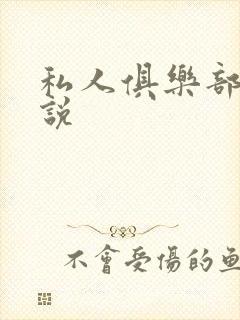 私人俱樂部
說
不會受傷的魚